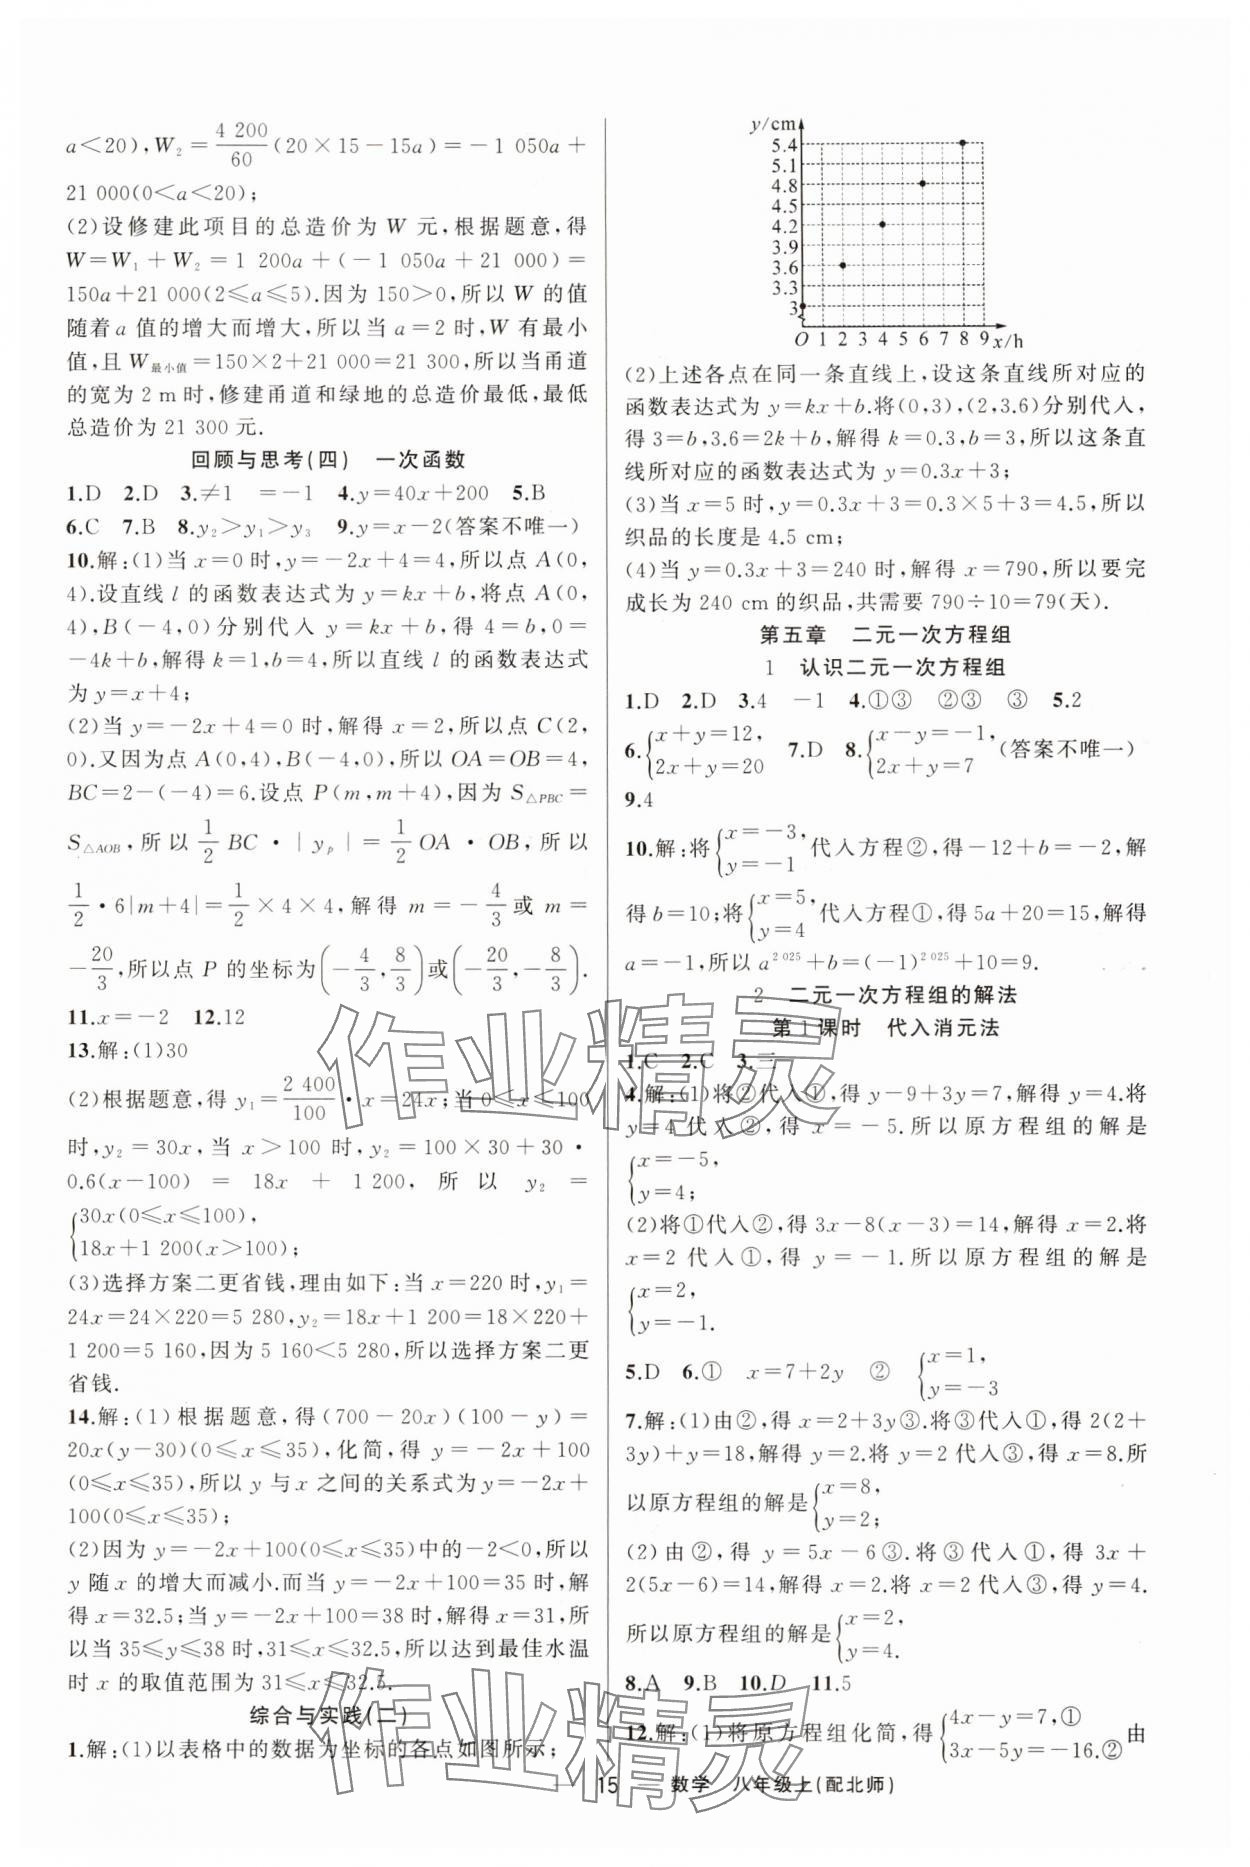 a<20),W₂=4 200/60(20×15−15a)=−1 050a+
21 000(0<a<20);
(2)设修建此项目的总造价为 W 元,根据题意,得
W=W₁+W₂=1 200a+(−1 050a+21 000)=
150a+21 000(2≤a≤5).因为 150>0,所以 W 的值
随着 a 值的增大而增大,所以当 a=2 时,W 有最小
值,且 W最小值=150×2+21 000=21 300,所以当甬道
的宽为 2 m 时,修建甬道和绿地的总造价最低,最低
总造价为 21 300 元.
回顾与思考(四) 一次函数
1.D 2.D 3.≠1 =−1 4.y=40x+200 5.B
6.C 7.B 8.y₂>y₁>y₃ 9.y=x−2(答案不唯一)
10.解:(1)当 x=0 时,y=−2x+4=4,所以点 A(0,
4).设直线 l 的函数表达式为 y=kx+b,将点 A(0,
4),B(−4,0)分别代入 y=kx+b,得 4=b,0=
−4k+b,解得 k=1,b=4,所以直线 l 的函数表达式
为 y=x+4;
(2)当 y=−2x+4=0 时,解得 x=2,所以点 C(2,
0).又因为点 A(0,4),B(−4,0),所以 OA=OB=4,
BC=2−(−4)=6.设点 P(m,m+4),因为 S△PBC=
S△AOB,所以 1/2 BC·|yₚ|=1/2 OA·OB,所以
1/2·6|m+4|=1/2×4×4,解得 m=−4/3 或 m=
−20/3,所以点 P 的坐标为(−4/3,8/3)或(−20/3,−8/3).
11.x=−2 12.12
13.解:(1)30
(2)根据题意,得 y₁=2 400/100·x=24x;当 0≤x≤100
时,y₂=30x,当 x>100 时,y₂=100×30+30·
0.6(x−100)=18x+1 200,所以 y₂=
{30x(0≤x≤100),
18x+1 200(x>100);
(3)选择方案二更省钱,理由如下:当 x=220 时,y₁=
24x=24×220=5 280,y₂=18x+1 200=18×220+
1 200=5 160,因为 5 160<5 280,所以选择方案二更
省钱.
14.解:(1)根据题意,得(700−20x)(100−y)=
20x(y−30)(0≤x≤35),化简,得 y=−2x+100
(0≤x≤35),所以 y 与 x 之间的关系式为 y=−2x+
100(0≤x≤35);
(2)因为 y=−2x+100(0≤x≤35)中的−2<0,所以
y 随 x 的增大而减小.而当 y=−2x+100=35 时,解
得 x=32.5;当 y=−2x+100=38 时,解得 x=31,所
以当 35≤y≤38 时,31≤x≤32.5,所以达到最佳水温
时 x 的取值范围为 31≤x≤32.5.
综合与实践(二)
1.解:(1)以表格中的数据为坐标的各点如图所示;
y/cm
5.4
5.1
4.8
4.5
4.2
3.9
3.6
3.3
3
O 1 2 3 4 5 6 7 8 9 x/h
(2)上述各点在同一条直线上,设这条直线所对应的
函数表达式为 y=kx+b.将(0,3),(2,3.6)分别代入,
得 3=b,3.6=2k+b,解得 k=0.3,b=3,所以这条直
线所对应的函数表达式为 y=0.3x+3;
(3)当 x=5 时,y=0.3x+3=0.3×5+3=4.5,所以
织品的长度是 4.5 cm;
(4)当 y=0.3x+3=240 时,解得 x=790,所以要完
成长为 240 cm 的织品,共需要 790÷10=79(天).
第五章 二元一次方程组
1 认识二元一次方程组
1.D 2.D 3.4 −1 4.①③ ②③ ③ 5.2
6.{x+y=12, 2x+y=20 7.D 8.{x−y=−1, 2x+y=7 (答案不唯一)
9.4
10.解:将{x=−3, y=−1 代入方程②,得−12+b=−2,解
得 b=10;将{x=5, y=4 代入方程①,得 5a+20=15,解得
a=−1,所以 a²⁰²⁵+b=(−1)²⁰²⁵+10=9.
2 二元一次方程组的解法
第 1 课时 代入消元法
1.C 2.C 3.三
4.解:(1)将②代入①,得 y−9+3y=7,解得 y=4.将
y=4 代入②,得 x=−5.所以原方程组的解是
{x=−5,
y=4;
(2)将①代入②,得 3x−8(x−3)=14,解得 x=2.将
x=2 代入①,得 y=−1.所以原方程组的解是
{x=2,
y=−1.
5.D 6.① x=7+2y ② {x=1, y=−3
7.解:(1)由②,得 x=2+3y③.将③代入①,得 2(2+
3y)+y=18,解得 y=2.将 y=2 代入③,得 x=8.所
以原方程组的解是{x=8, y=2;
(2)由②,得 y=5x−6③.将③代入①,得 3x+
2(5x−6)=14,解得 x=2.将 x=2 代入③,得 y=4.
所以原方程组的解是{x=2, y=4.
8.A 9.B 10.D 11.5
12.解:(1)将原方程组化简,得{4x−y=7,① 3x−5y=−16.② 由
— 15 — 数学 八年级上(配北师)
作业精灵
作业精灵